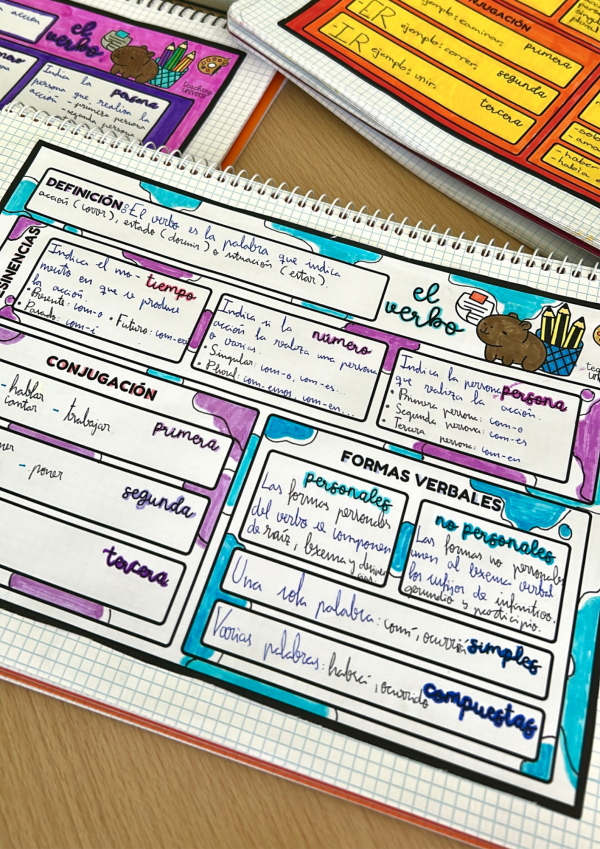 el
verbo
Indica la
persona
persona que realiza la
acción
- primera persona
- segunda persona
teaching
universe
CONJUGACIÓN
ejemplo: caminar
primera
IR
ejemplo: correr
segunda
IR
ejemplo: unir
tercera
DEFINICIÓN: El verbo es la palabra que indica
acción (correr), estado (dormir) o situación (estar)
el
verbo
SINENCIAS
Indica el mo-
tiempo
mento en que se produce
la acción.
• Presente: com-o • Futuro: com-er
• Pasado: com-i
Indica si la
número
acción la realiza una persona
o varias.
• Singular: com-o, com-es...
• Plural: com-emos, com-en...
Indica la persona
persona
que realiza la acción
• Primera persona: com-o
• Segunda persona: com-es
Tercera persona: com-en
CONJUGACIÓN
- hablar
cantar
- trabajar
primera
- poner
segunda
tercera
FORMAS VERBALES
personales
Las formas personales
del verbo se componen
de raíz, lexema y
no personales
Las formas no personales
unen al lexema verbal
los sufijos de infinitivo,
gerundio y participio.
Una sola palabra: comí, ocurrió
simples
Varias palabras: había, ocurrido
compuestas